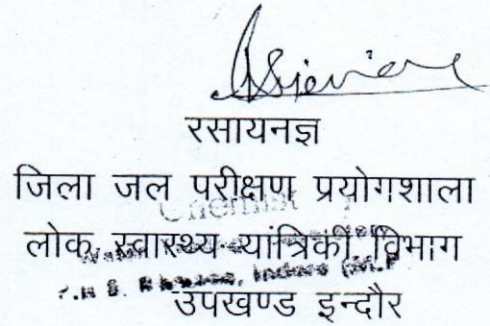 रसायनज्ञ
जिला जल परीक्षण प्रयोगशाला
Chemist
लोक स्वास्थ्य यांत्रिकी विभाग
उपखण्ड इन्दौर